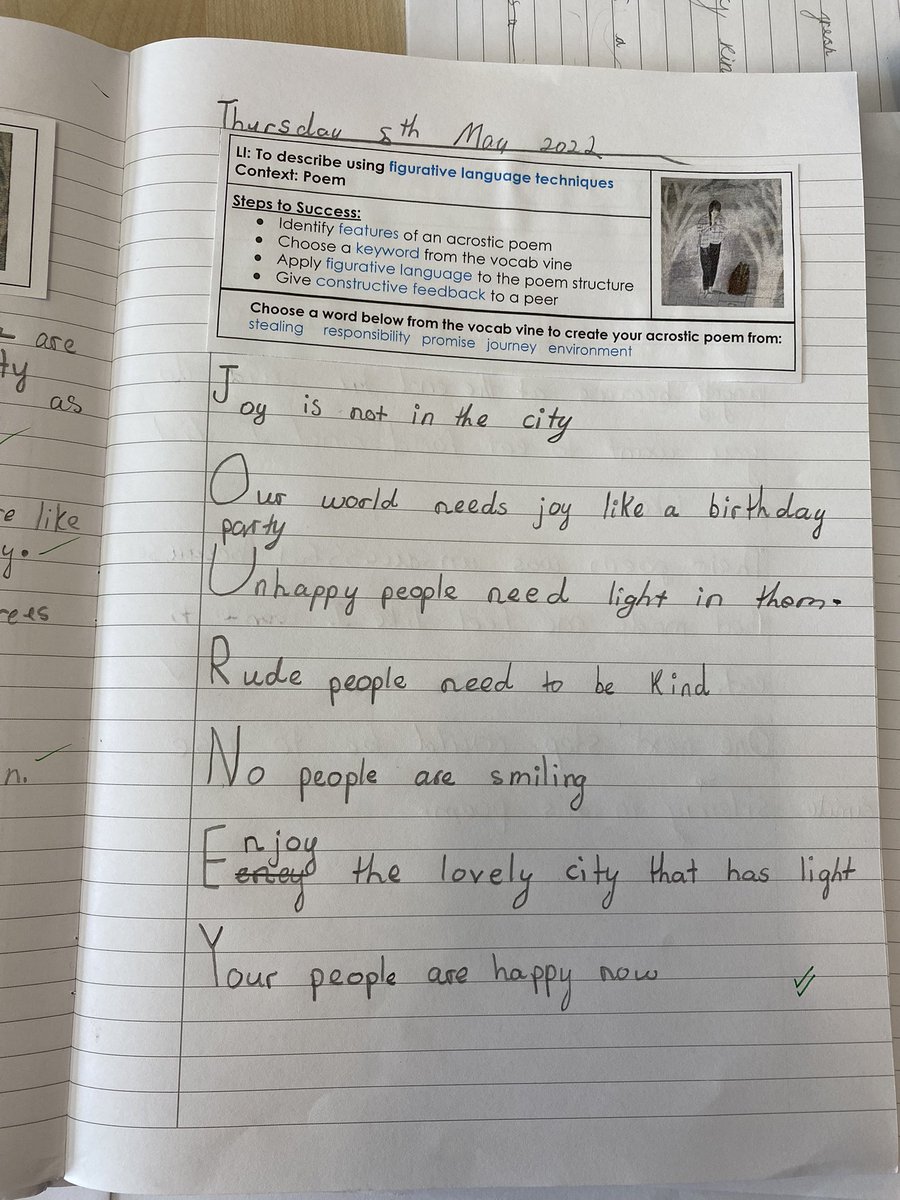 Thursday 5th May 2022
LI: To describe using figurative language techniques
Context: Poem
Steps to Success:
• Identify features of an acrostic poem
• Choose a keyword from the vocab vine
• Apply figurative language to the poem structure
• Give constructive feedback to a peer
Choose a word below from the vocab vine to create your acrostic poem from:
stealing responsibility promise journey environment
Joy is not in the city
Our world needs joy like a birthday
party
Unhappy people need light in them.
Rude people need to be Kind
No people are smiling
Enjoy the lovely city that has light
Your people are happy now
are
ty
as
like
y.
n.